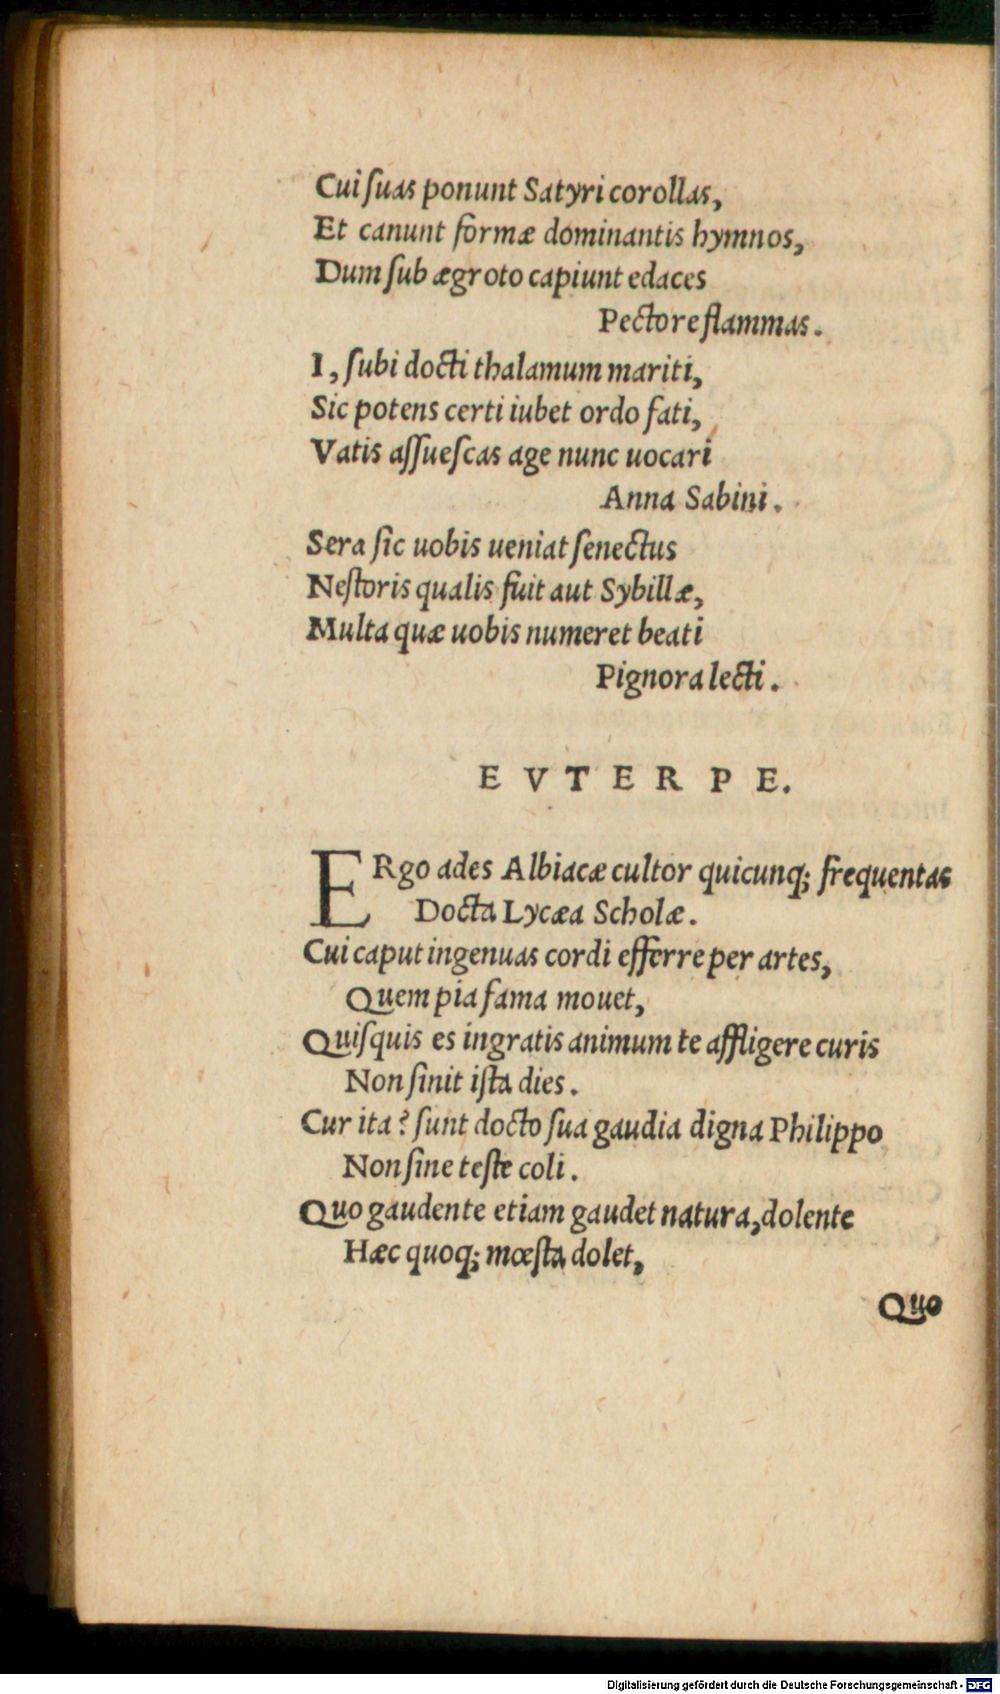 Cui ſuas ponunt Satyri corollas,
Et canunt formæ dominantis hymnos,
Dum ſub ægroto capiunt edaces
Pectore flammas.
I, ſubi docti thalamum mariti,
Sic potens certi iubet ordo fati,
Vatis aſſueſcas age nunc uocari
Anna Sabini.
Sera ſic uobis ueniat ſenectus
Neſtoris qualis fuit aut Sybillæ,
Multa quæ uobis numeret beati
Pignora lecti.
EVTERPE.
ERgo ades Albiacæ cultor quicunq; frequentas
Docta Lycæa Scholæ.
Cui caput ingenuas cordi efferre per artes,
Quem pia fama mouet,
Quiſquis es ingratis animum te affligere curis
Non ſinit iſta dies.
Cur ita? ſunt docto ſua gaudia digna Philippo
Non ſine teſte coli.
Quo gaudente etiam gaudet natura, dolente
Hæc quoq; mœſta dolet,
Quo
Digitalisierung gefördert durch die Deutsche Forschungsgemeinschaft - DFG